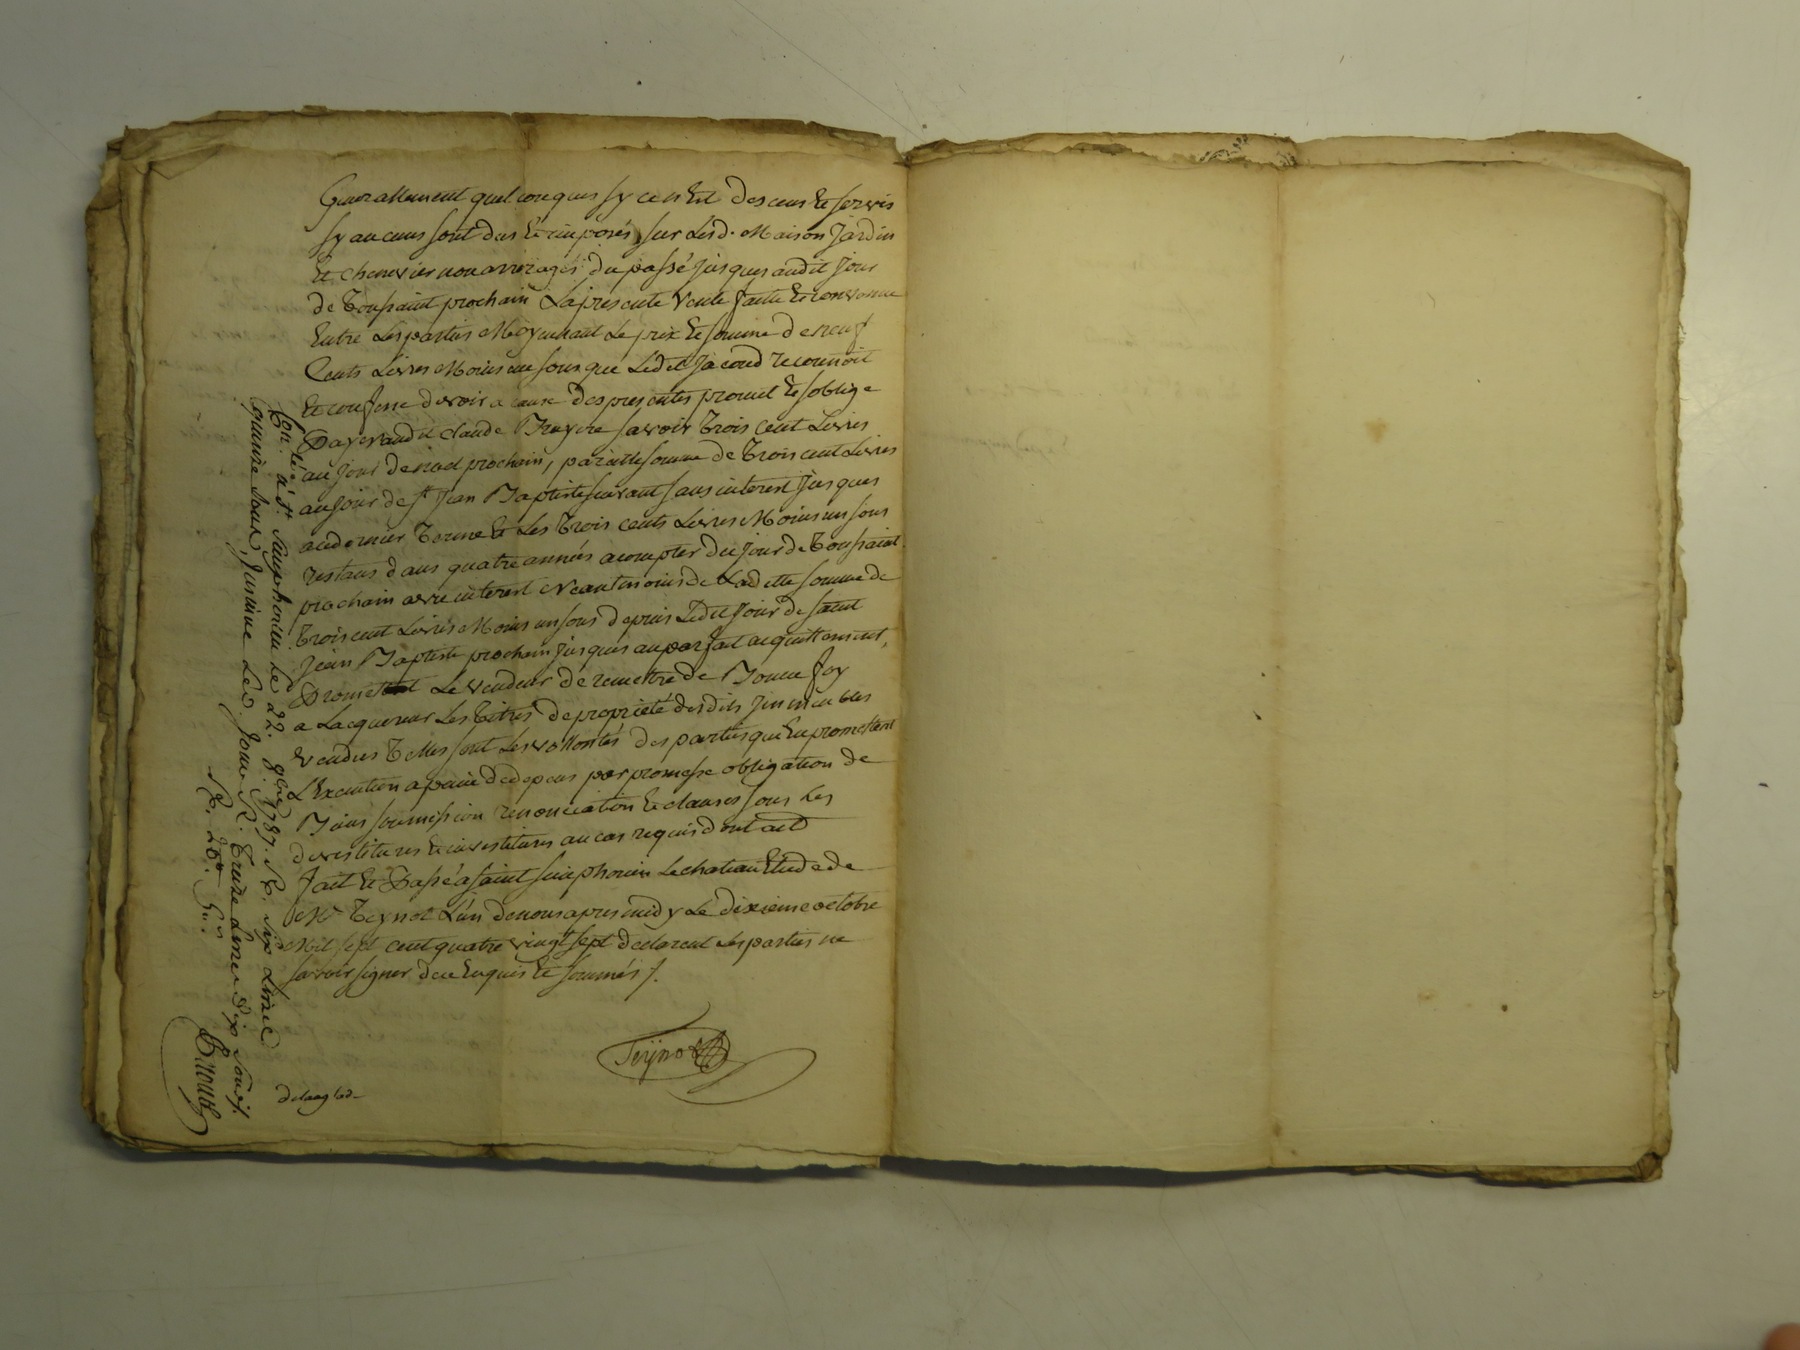 Generallement quelconques sy ce n'est des cens & servis
sy aucuns sont dus & imposés sur lesd. Maison Jardin
& chenevier non arreragés du passé jusques audit jour
de Toussaint prochain La presente vente faitte & convenue
Entre Les parties Moyennant Le prix & somme de neuf
Cents Livres Moins un sous que Ledit Jacoud reconnoit
& confesse devoir a cause des presentes promet & s'oblige
Payer audit Claude Bruyere savoir Trois Cent Livres
au jour de noel prochain, pareille somme de Trois cent Livres
au jour de st Jean Baptiste suivant sans interest jusques
au dernier Terme & Les Trois cents Livres Moins un sous
restans dans quatre années a compter du jour de Toussaint
prochain avec interest neantmoins de Ladette somme de
Trois cent Livres Moins un sous depuis Ledit jour de saint
Jean Baptiste prochain jusques au parfait acquittement,
Promet Le vendeur de remettre de Bonne foy
a Lacquereur Les Titres de propriété desdits Jmmeubles
vendues Telles sont Les vollontés des parties qui En promettent
L'Execution a peine de depens par promesse obligation de
Biens soumission renonciation & clauses sous Les
devestitures & investitures au cas requis dont acte
fait & Passé a saint simphorien Le chateau Etude de
Me Teynot L'un de nous apres midy Le dixieme octobre
Mil sept cent quatre vingt sept declarent Les parties ne
savoir signer de ce Enquis & sommés /.
Teÿnot
delanglad
Con.lé à St. Simphorien le 22. 8bre 1787. R. six Livres
quinze sous, Jnsinué Led. Jour R. Treize Livres dix sous /.
R. 20s.